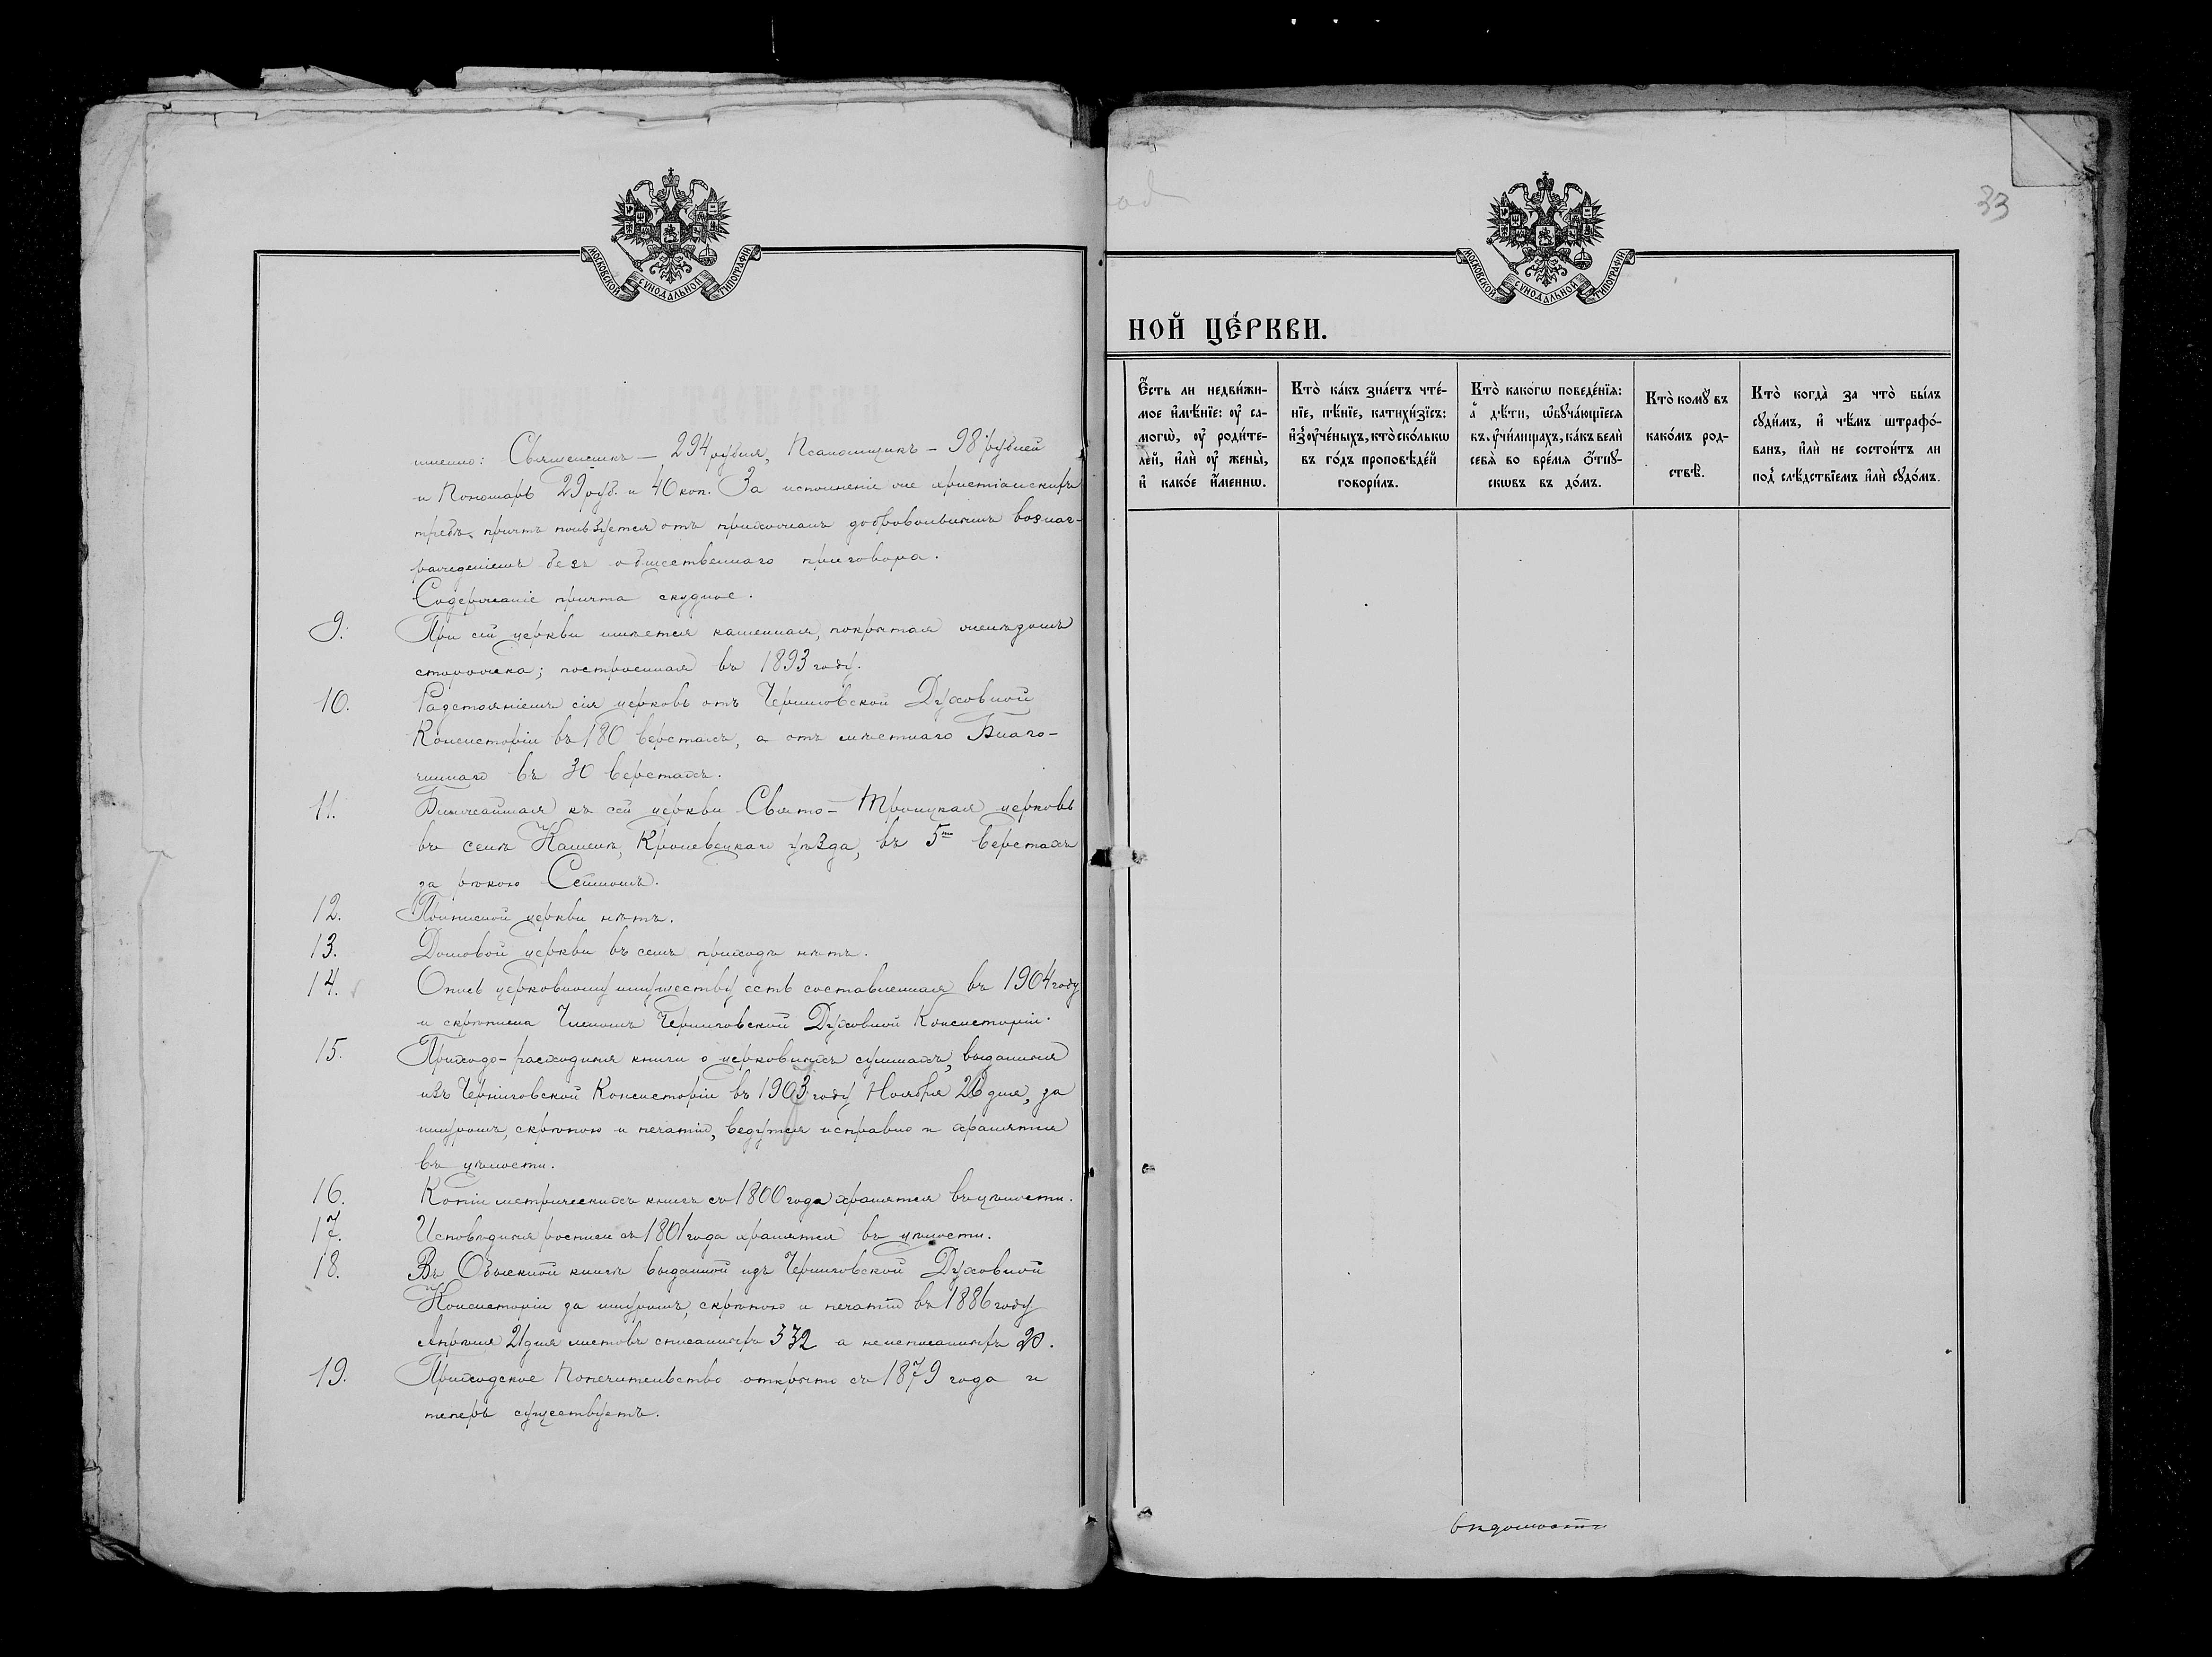 МОСКОВСКОЙ СУНОДАЛЬНОЙ ТИПОГРАФІИ
именно: Священникъ — 294 рубля, Псаломщикъ — 98 рублей
и Пономарь 29 руб. и 40 коп. За исполненіе же христіанскихъ
требъ, причтъ пользуется отъ прихожанъ добровольнымъ вознаг-
ражденіемъ безъ общественнаго приговора.
Содержаніе причта скудное.
9. При сей церкви имѣется каменная, покрытая желѣзомъ
сторожка; построенная въ 1893 году.
10. Разстояніемъ сія церковь отъ Черниговской Духовной
Консисторіи въ 180 верстахъ, а отъ мѣстнаго Благо-
чиннаго въ 30 верстахъ.
11. Ближайшая къ сей церкви Свято-Троицкая церковь
въ селѣ Камень, Кролевецкаго уѣзда, въ 5ти верстахъ
за рѣкою Сеймомъ.
12. Приписной церкви нѣтъ.
13. Домовой церкви въ семъ приходѣ нѣтъ.
14. Опись церковному имуществу есть составленная въ 1904 году
и скрѣплена Членомъ Черниговской Духовной Консисторіи.
15. Приходо-расходныя книги о церковныхъ суммахъ, выданныя
изъ Черниговской Консисторіи въ 1903 году Ноября 26 дня, за
шнуромъ, скрѣпою и печатію, ведутся исправно и хранятся
въ цѣлости.
16. Копіи метрическихъ книгъ съ 1800 года хранятся въ цѣлости.
17. Исповѣдныя росписи съ 1801 года хранятся въ цѣлости.
18. Въ Обыскной книгѣ выданной изъ Черниговской Духовной
Консисторіи за шнуромъ, скрѣпою и печатію въ 1886 году
Апрѣля 21 дня листовъ списанныхъ 332 а неисписанныхъ 20.
19. Приходское Попечительство открыто съ 1879 года и
теперь существуетъ.
33
МОСКОВСКОЙ СУНОДАЛЬНОЙ ТИПОГРАФІИ
НОЙ ЦЕ́РКВИ.
Е҆́сть ли недви́жи-
мое и҆мѣ́нїе: ᲂу҆ са-
могѡ̀, ᲂу҆ роди́те-
ле́й, и҆лѝ ᲂу҆ жены̀,
и҆ како́е и҆́меннѡ.
Кто̀ ка́къ зна́етъ чте́-
нїе, пѣ́нїе, катихи́зїсъ:
и҆з̾ ᲂу҆че́ныхъ, кто̀ ско́лькѡ
въ го́дъ проповѣ́дей
говори́лъ.
Кто̀ како́гѡ поведе́нїѧ:
а҆ дѣ́ти, ѡ҆бꙋча́ющїесѧ
въ ᲂу҆чи́лищахъ, ка́къ велѝ
себѧ̀ во вре́мѧ ѿпꙋ-
скѡвъ въ до́мъ.
Кто̀ комꙋ̀ въ
како́мъ род-
ствѣ̀.
Кто̀ когда̀ за что̀ бы́лъ
сꙋди́мъ, и҆ чѣ́мъ штрафо́-
ванъ, и҆лѝ не состои́тъ ли
под̾ слѣ́дствїемъ и҆лѝ сꙋдо́мъ.
вѣдомости